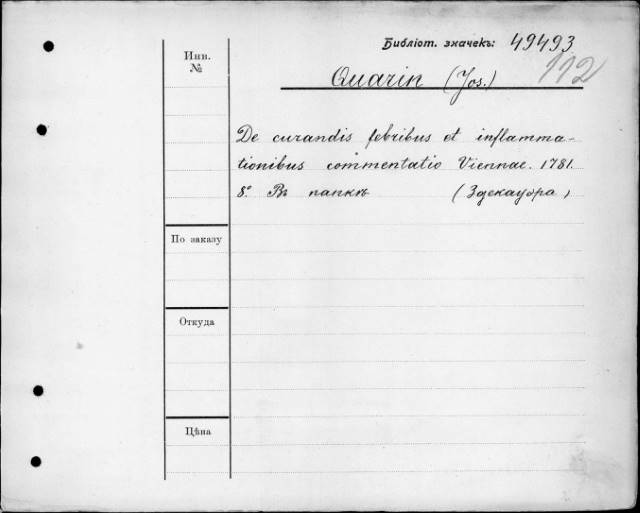 Библіот. значекъ: 49493
112
Инв.
№
Quarin (Jos.)
De curandis febribus et inflamma-
tionibus commentatio Viennae. 1781.
8º. Въ папкѣ (Здекауера)
По заказу
Откуда
Цѣна